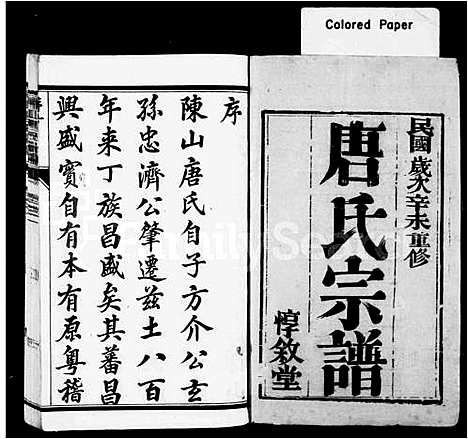 Colored Paper
民國歲次辛未重修
唐氏宗譜
惇敘堂
序
陳山唐氏自子方介公玄
孫忠濟公肇遷茲土八百
年来丁族昌盛矣其蕃昌
興盛實自有本有原粵稽
FamilySearch